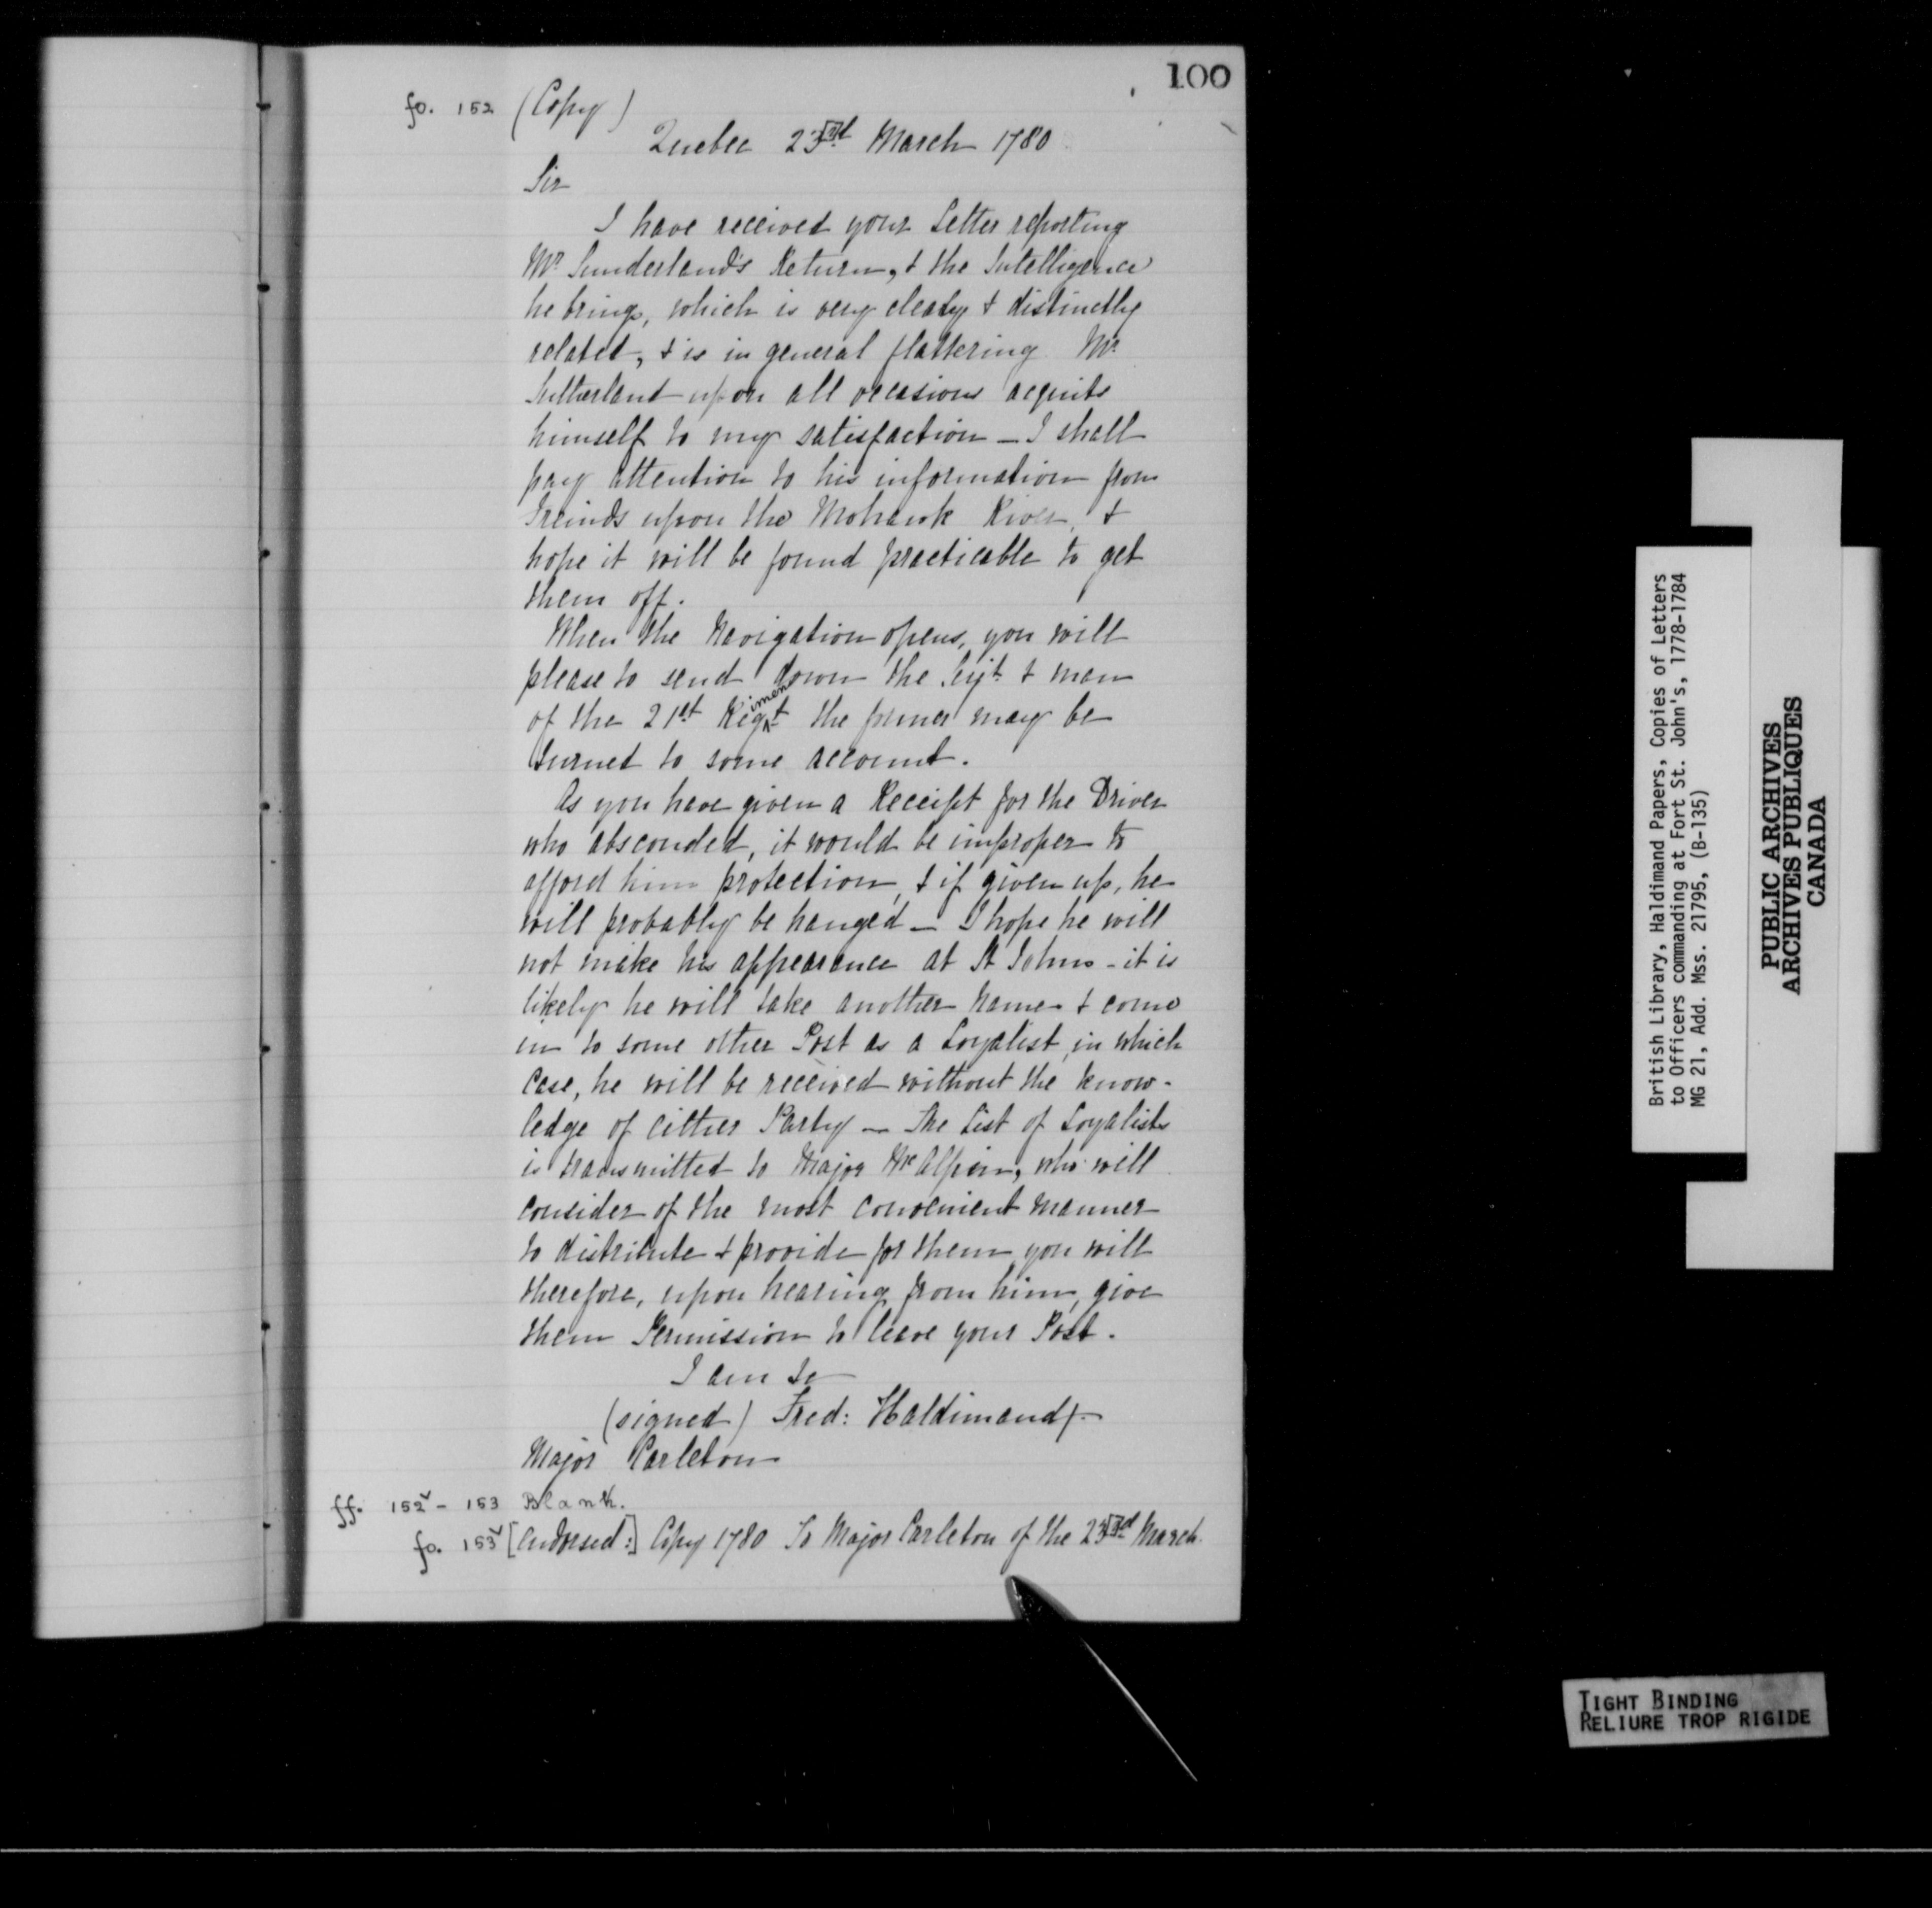 100
fo. 152 (Copy)
Quebec 23rd March 1780
Sir
I have received your Letter reporting
Mr Sunderland's Return, & the Intelligence
he brings, which is very clearly & distinctly
related, & is in general flattering Mr
Sutherland upon all occasions acquits
himself to my satisfaction – I shall
pay attention to his information from
Freinds upon the Mohawk River, &
hope it will be found practicable to get
them off.
When the Navigation opens, you will
please to send down the Serjt & man
of the 21st Regiment the former may be
turned to some account.
As you have given a Receipt for the Driver
who absconded, it would be improper to
afford him protection, & if given up, he
will probably be hanged – I hope he will
not make his appearance at St Johns – it is
likely he will take another name & come
in to some other Post as a Loyalist, in which
case, he will be received without the know-
ledge of either Party – The List of Loyalists
is transmitted to Major McAlpin, who will
consider of the most convenient manner
to distribute & provide for them you will
therefore, upon hearing from him, give
them Permission to leave your Post.
I am &c
(signed) Fred: Haldimand
Major Carleton
ff. 152v – 153 Blank.
fo. 153v [Endorsed:] Copy 1780 To Major Carleton of the 23rd March.
British Library, Haldimand Papers, Copies of Letters
to Officers commanding at Fort St. John's, 1778-1784
MG 21, Add. Mss. 21795, (B-135)
PUBLIC ARCHIVES
ARCHIVES PUBLIQUES
CANADA
TIGHT BINDING
RELIURE TROP RIGIDE